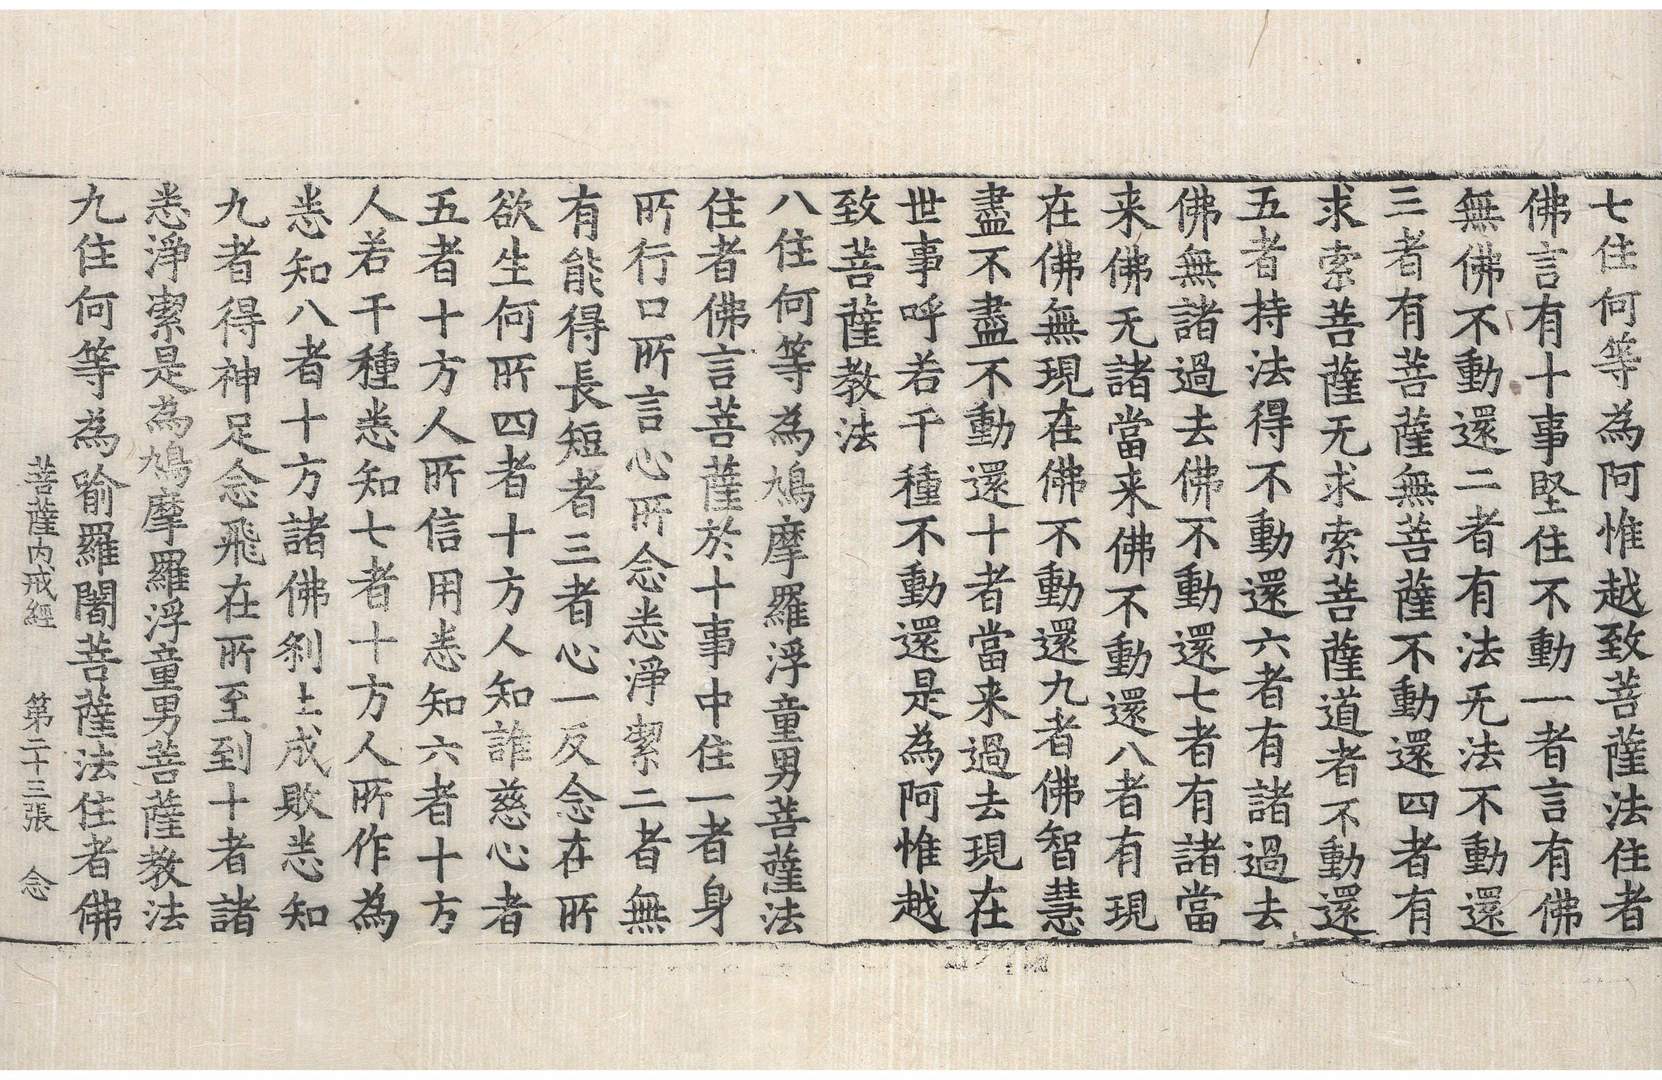 七住何等為阿惟越致菩薩法住者
佛言有十事堅住不動一者言有佛
無佛不動還二者有法无法不動還
三者有菩薩無菩薩不動還四者有
求索菩薩无求索菩薩道者不動還
五者持法得不動還六者有諸過去
佛無諸過去佛不動還七者有諸當
来佛无諸當来佛不動還八者有現
在佛無現在佛不動還九者佛智慧
盡不盡不動還十者當来過去現在
世事呼若干種不動還是為阿惟越
致菩薩教法
八住何等為鳩摩羅浮童男菩薩法
住者佛言菩薩於十事中住一者身
所行口所言心所念悉淨潔二者無
有能得長短者三者心一反念在所
欲生何所四者十方人知誰慈心者
五者十方人所信用悉知六者十方
人若干種悉知七者十方人所作為
悉知八者十方諸佛刹土成敗悉知
九者得神足念飛在所至到十者諸
悉淨潔是為鳩摩羅浮童男菩薩教法
九住何等為喻羅闍菩薩法住者佛
菩薩內戒經 第二十三張 念